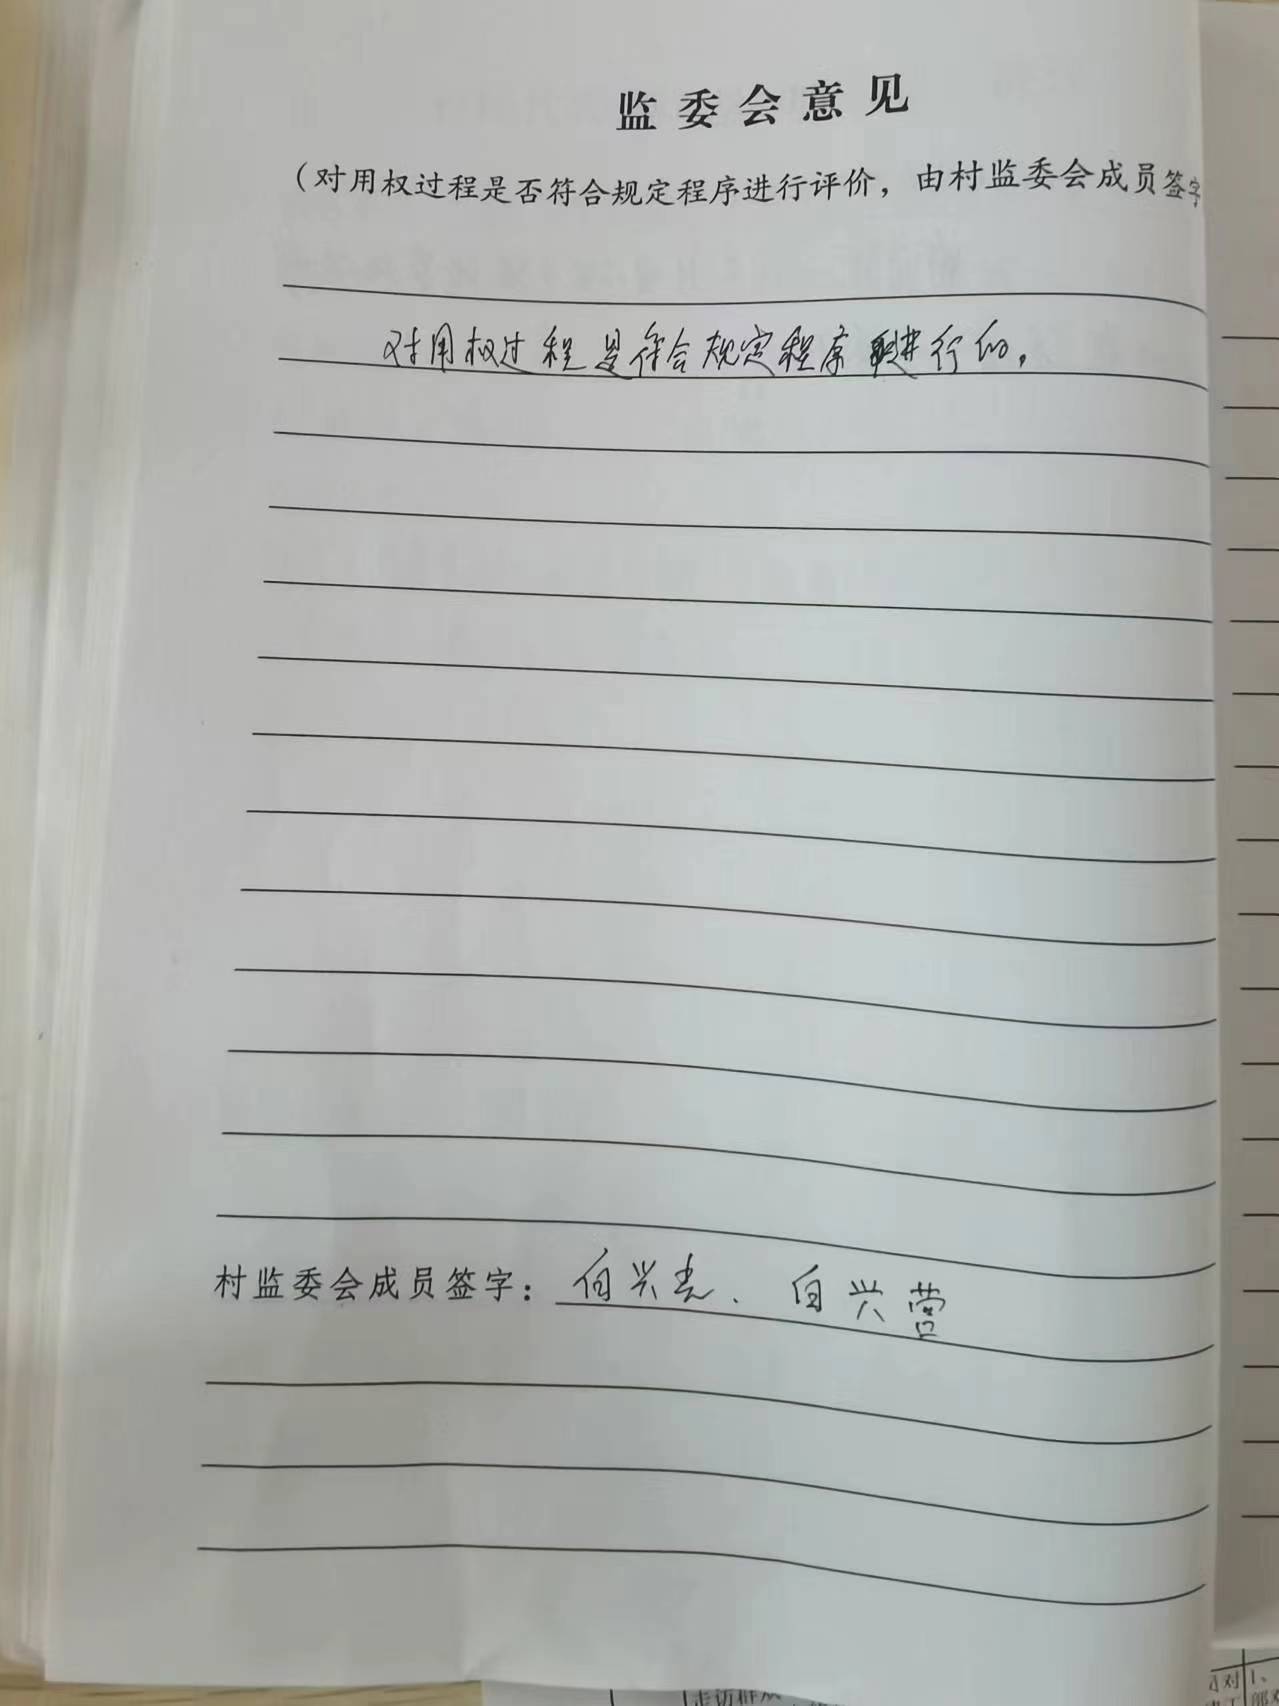 监委会意见
（对用权过程是否符合规定程序进行评价，由村监委会成员签字
对用权过程是符合规定程序进行的。
村监委会成员签字：伯兴志、自兴营
走访群众